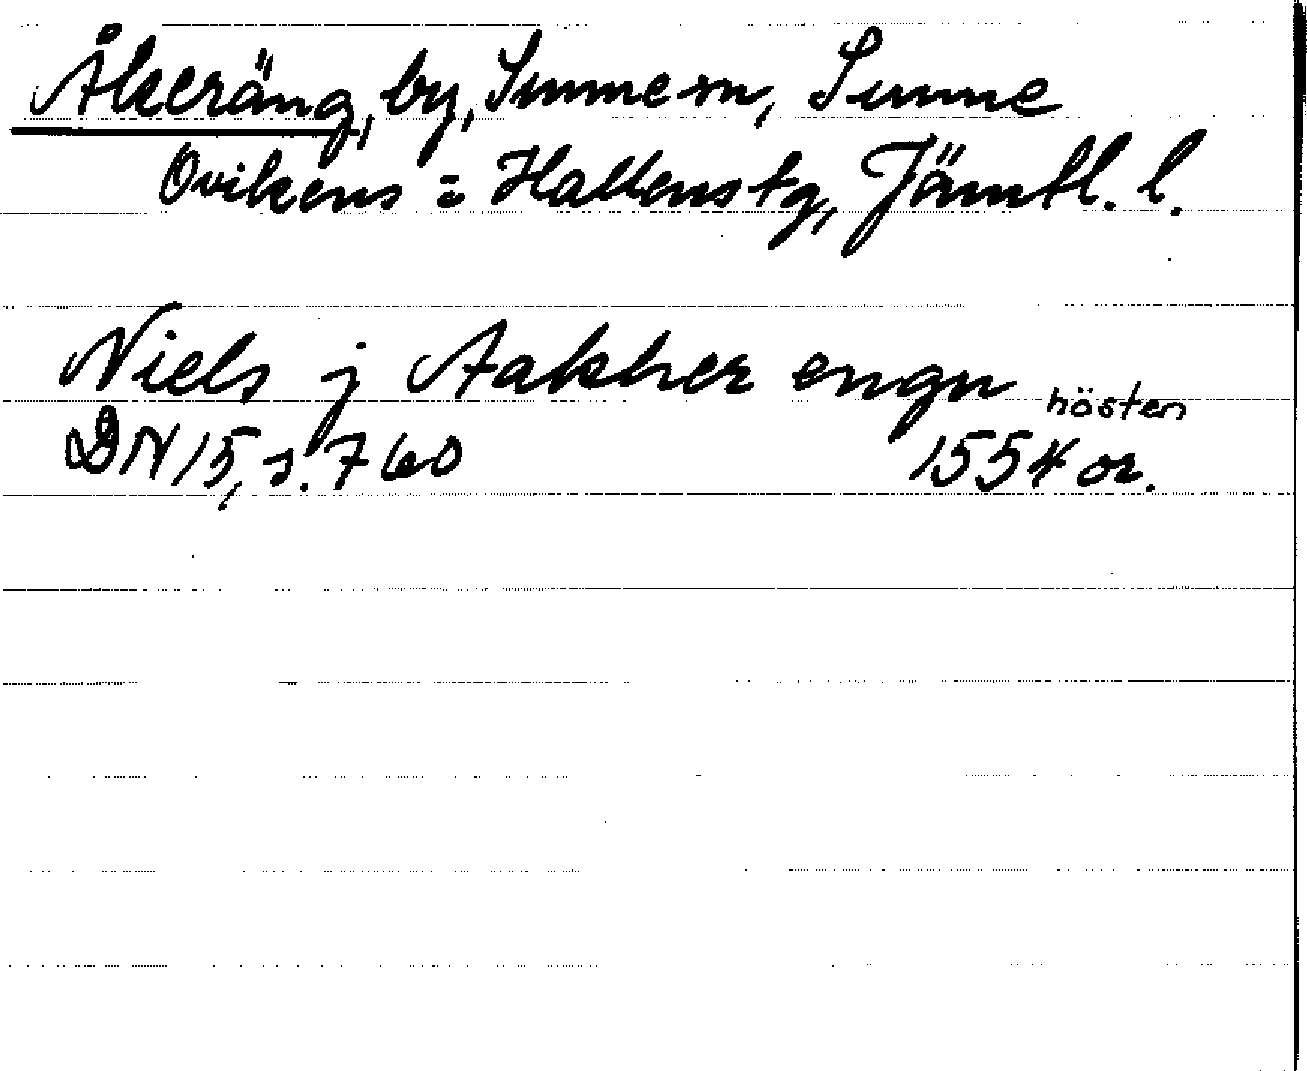 Åkeräng, by, Sunne sn, Sunne
Ovikens = Hallens tg, Jämtl. l.
Niels j Aakher engn hösten
DN 15, s. 760 1554 or.